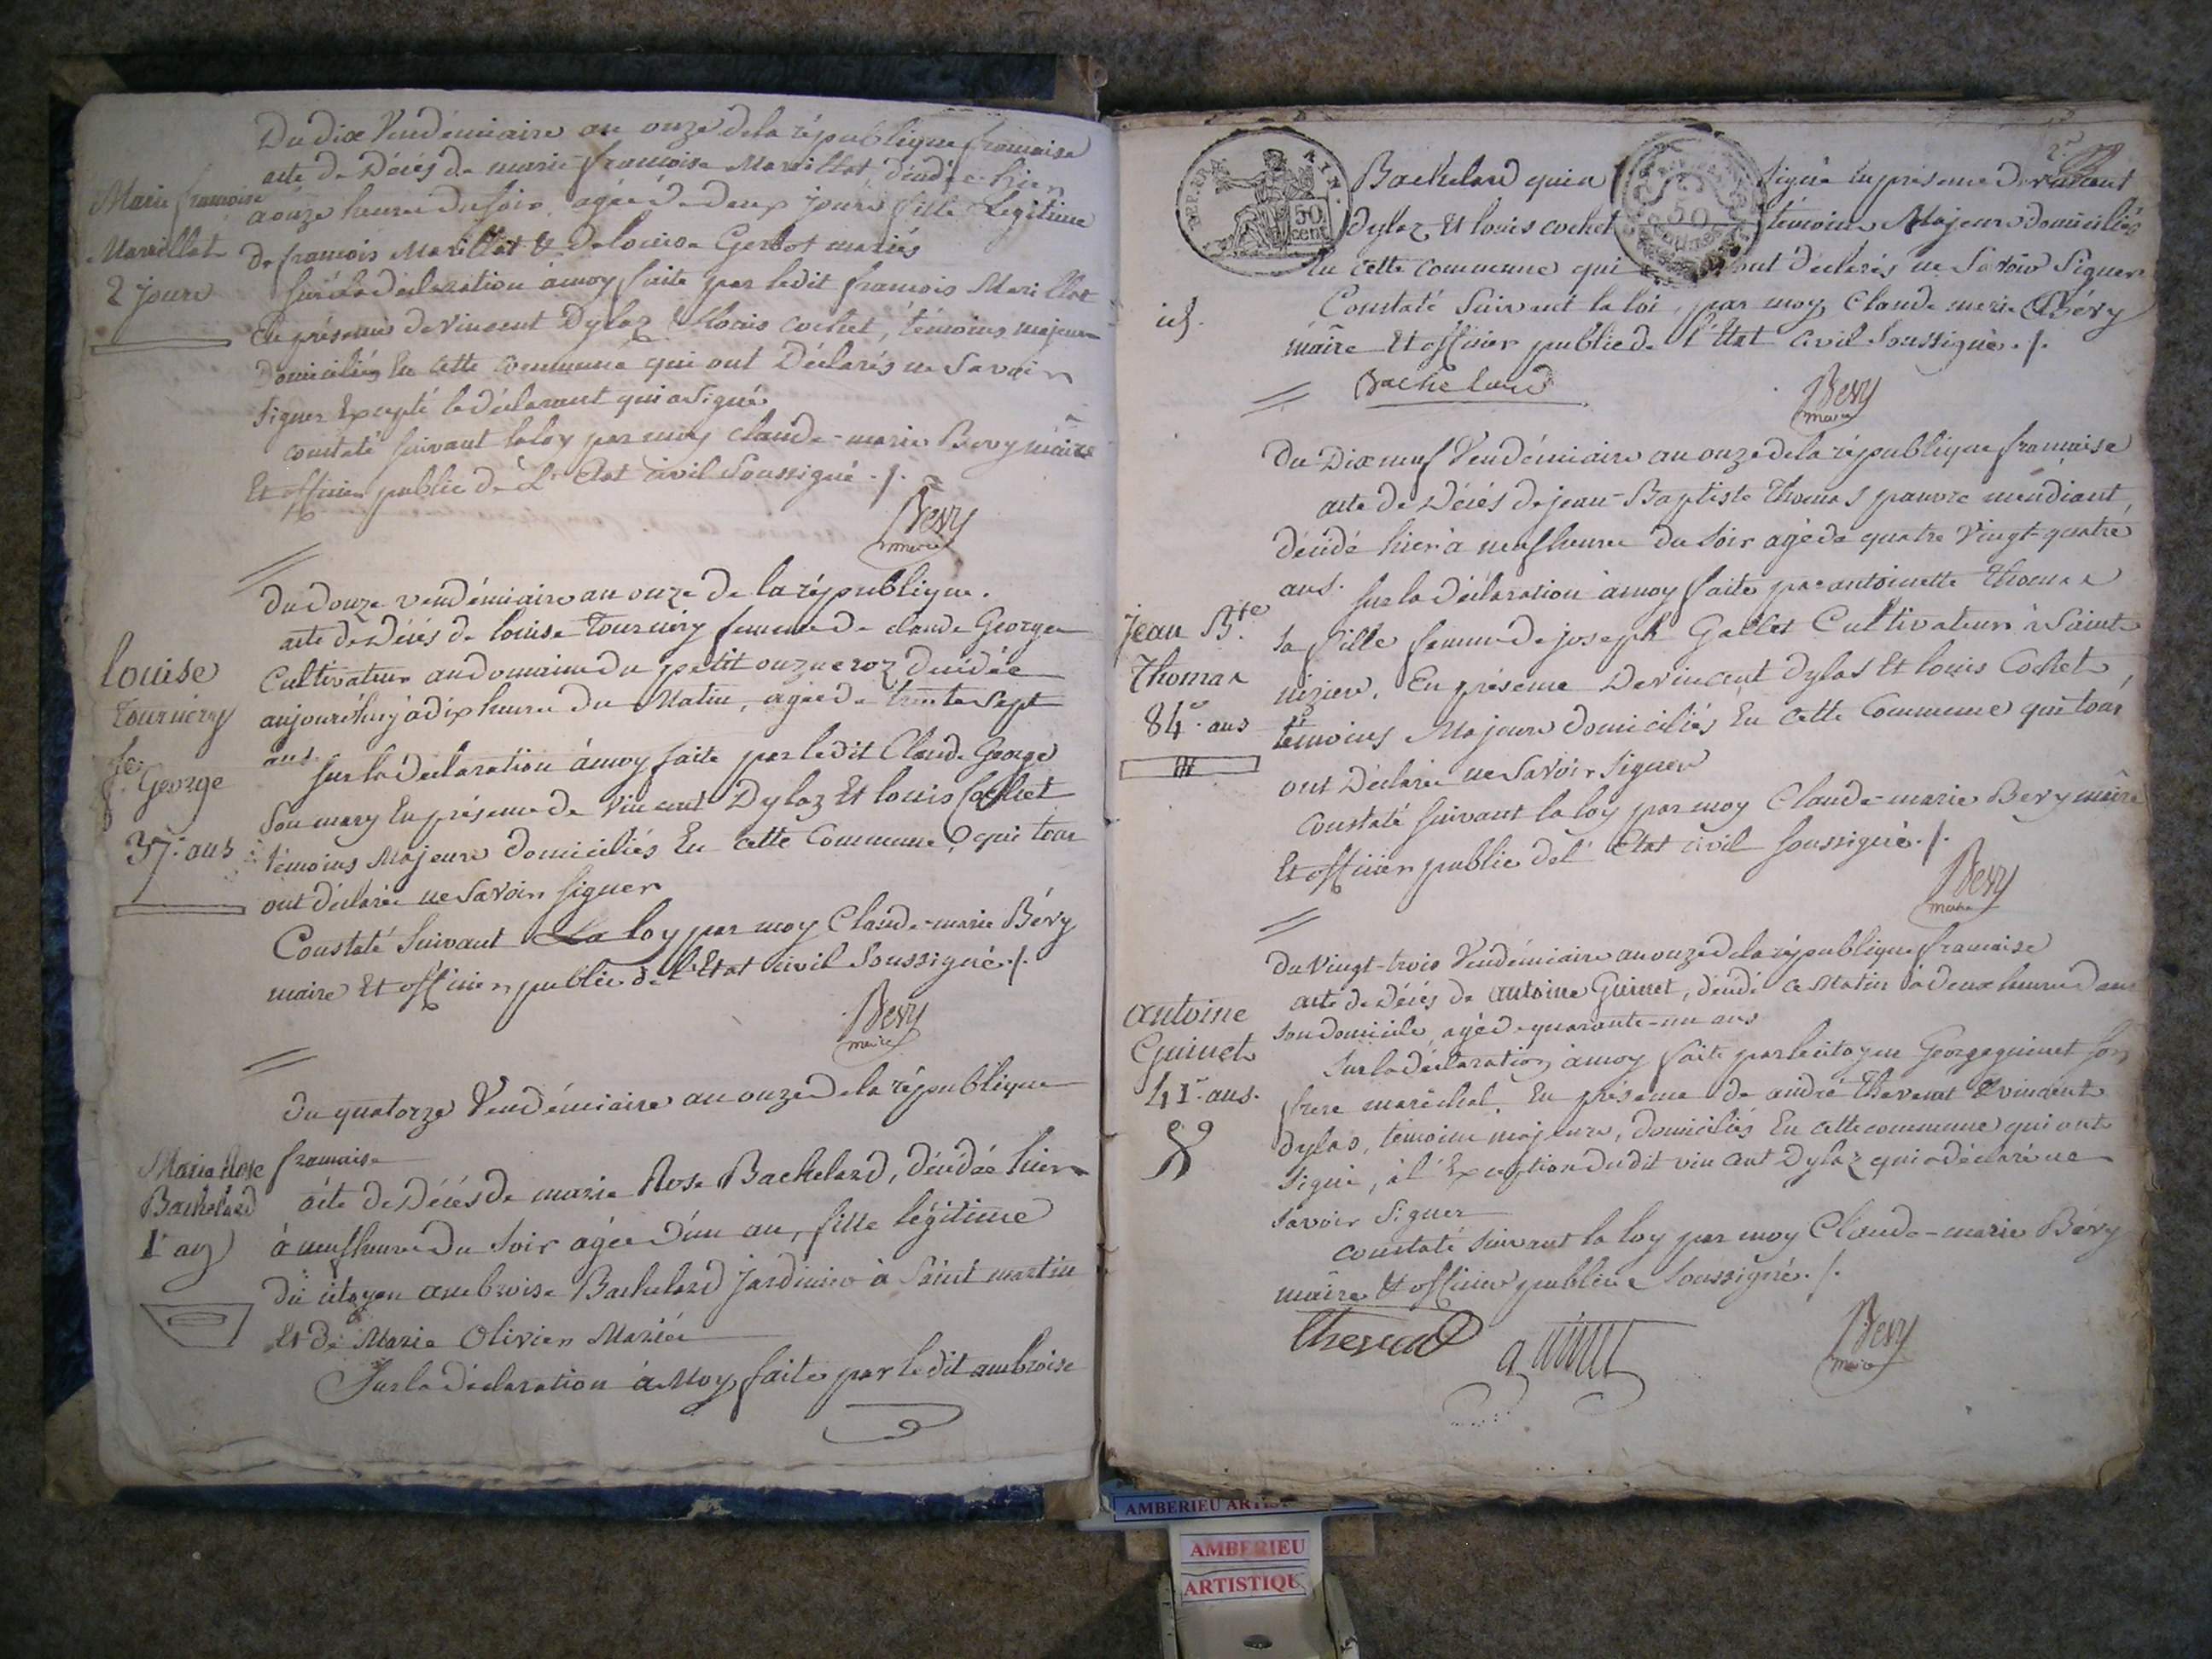 Du dix Vendémiaire an onze de la république francaise
acte de Décés de marie francoise Marillat, décédée hier
a onze heures du soir, agée de deux jours fille Légitime
de francois Marillat & de louise Gerlot mariés
Sur la déclaration à moy faite par ledit francois Marillat
En présence de vincent Dylaz & louis cochet, témoins majeurs
Domiciliés En cette commune qui ont Déclarés ne Savoir
signer Excepté le déclarant qui a Signé
constaté suivant la loy par moy claude-marie Bevy maire
Et officier public de L'Etat civil Soussigné ./.
Bevy
maire
Marie francoise
Marillat
2 jours
Du douze vendémiaire an onze de la république.
acte de Décés de louise Tournery femme de claude George
Cultivateur au domaine du petit ouzneroz decédée
aujourd'huy à dix heures du Matin, agée de trente Sept
ans.
Sur la déclaration à moy faite par ledit Claude George
Son mary En présence de Vincent Dylaz Et louis Cochet
témoins Majeurs domiciliés En cette Commune, qui tous
ont déclarés ne Savoir signer
Constaté Suivant La loy par moy Claude-marie Bévy
maire Et officier public de l'Etat civil Soussigné ./.
Bevy
maire
louise
Tournery
fe. George
37. ans
Du quatorze Vendémiaire an onze de la république
francaise
acte de Décés de marie Rose Bachelard, décédée hier
à neuf heures Du Soir agée D'un an, fille légitime
du citoyen ambroise Bachelard Jardinier à Saint martin
Et de Marie Olivier Mariés
Sur la déclaration à Moy faite par ledit ambroise
Marie Rose
Bachelard
1 an
DEP. DE L'AIN.
50
cent
50
2e
Bachelard qui a signé En présence de vincent
Dylaz Et louis cochet témoins Majeurs domiciliés
En cette commune qui ont déclarés ne Savoir Signer
Constaté Suivant la loi, par moy Claude marie Bévy
maire Et officier public de l'Etat Civil Soussigné ./.
Bachelard
Bevy
maire
Du Dix neuf Vendémiaire an onze de la république francaise
acte de Décés de jean-Baptiste Thomas pauvre mendiant,
décédé hier à neuf heures du Soir agé de quatre Vingt-quatre
ans.
Sur la déclaration à moy faite par antoinette Thomas
sa fille femme de joseph Gallet Cultivateur à Saint
nizier. En présence De vincent Dylas Et louis Cochet,
témoins Majeurs domiciliés En cette Commune qui tous
ont Déclarés ne Savoir Signer
Constaté suivant la loy par moy Claude-marie Bevy maire
Et officier public de l'Etat civil soussigné ./.
Bevy
maire
jean Bte.
Thomas
84. ans
Du Vingt-trois Vendémiaire an onze de la république francaise
acte de Décés de antoine Guinet, décédé ce Matin à deux heures dans
son domicile, agé de quarante-un ans
Sur la déclaration à moy faite par le citoyen George guinet son
frere maréchal. En présence de andré thevenat & vincent
Dylas, témoins majeurs, domiciliés En cette commune qui ont
Signé, à l'Exception du dit vincent Dylaz qui a déclaré ne
Savoir Signer
constaté suivant la loy par moy Claude-marie Bévy
maire & officier public Soussigné ./.
thevenat
guinet
Bevy
maire
antoine
Guinet
41. ans.
AMBERIEU ARTIS
AMBERIEU
ARTISTIQU